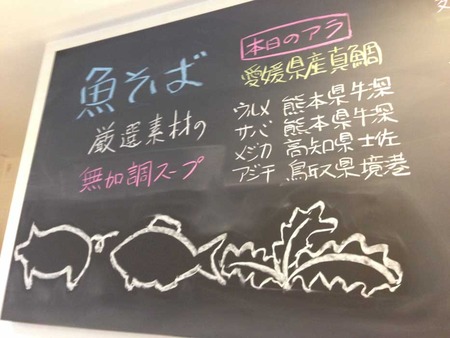 魚そば
厳選素材の
無加調スープ
本日のアラ
愛媛県産真鯛
ウルメ 熊本県牛深
サバ 熊本県牛深
メジカ 高知県土佐
アジ干 鳥取県境港